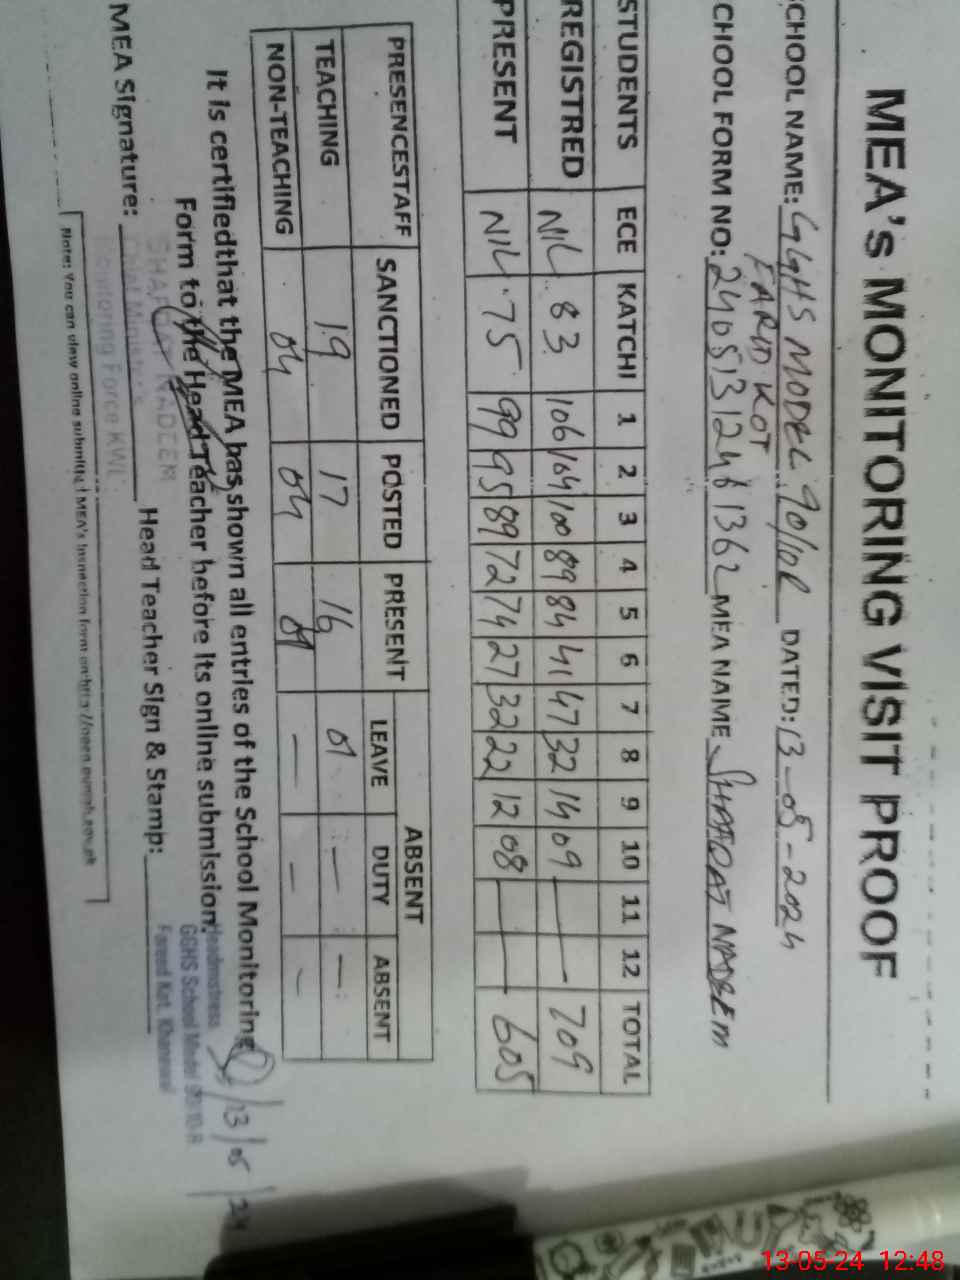 MEA's MONITORING VISIT PROOF
SCHOOL NAME: GGHS MODEL 90/10R DATED: 13-05-2024
FARID KOT
CHOOL FORM NO: MEA NAME SHAFQAT NADEEM
STUDENTS ECE KATCHI 1 2 3 4 5 6 7 8 9 10 11 12 TOTAL
REGISTRED NIL 83 106 104 100 89 84 41 47 32 14 09 — 709
PRESENT NIL 75 99 95 89 72 74 27 32 22 12 08 — 605
PRESENCESTAFF SANCTIONED POSTED PRESENT ABSENT
LEAVE DUTY ABSENT
TEACHING 19 17 16 01 — —
NON-TEACHING 04 04 04 — — —
It is certifiedthat the MEA has shown all entries of the School Monitoring
Form to the Head Teacher before its online submission.
13/05/24
Headmistress
GGHS School Model 90/10-R
Fareed Kot, Khanewal
MEA Signature: Head Teacher Sign & Stamp:
SHAFQAT NADEEM
Chief Minister's
Monitoring Force KWL
Note: You can view online submitted MEA's Inspection form on:
13-05-24 12:48